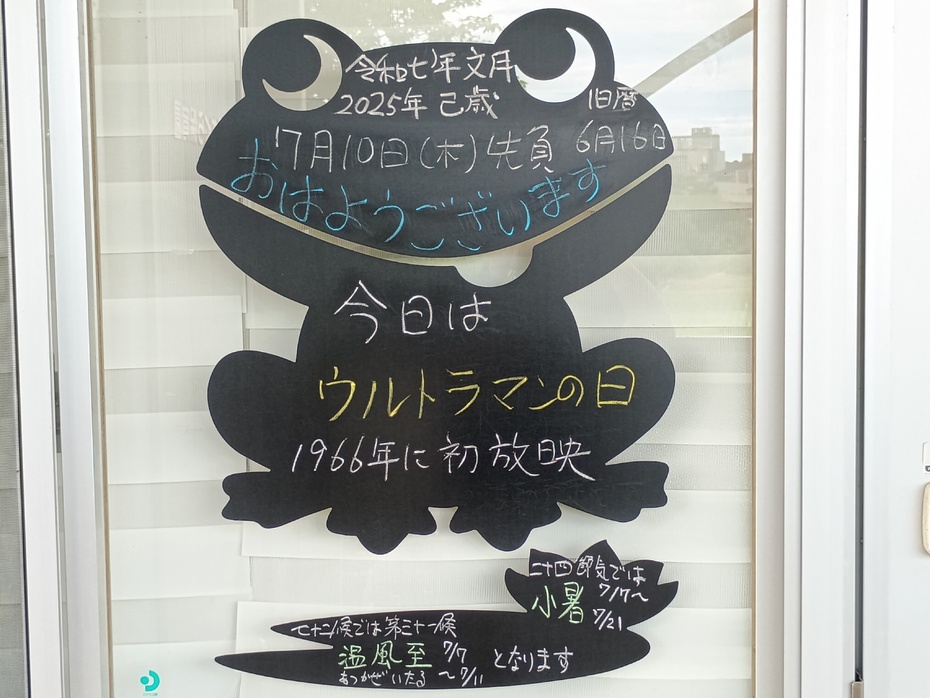 令和七年文月
2025年 己歳
旧暦
7月10日(木)先負 6月16日
おはようございます
今日は
ウルトラマンの日
1966年に初放映
二十四節気では
小暑 7/7〜
7/21
七十二候では第三十一候
温風至 7/7
あつかぜいたる 〜7/11
となります